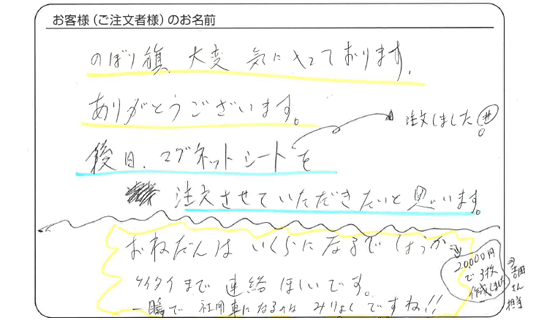 お客様（ご注文者様）のお名前
のぼり旗 大変 気に入っております。
ありがとうございます。
注文しました
後日、マグネットシートを
注文させていただきたいと思います。
おねだんは いくらになるでしょうか
ケイタイまで 連絡ほしいです。
一瞬で 社用車になるのは みりょくですね!!
20000円
で3枚
作成
担当